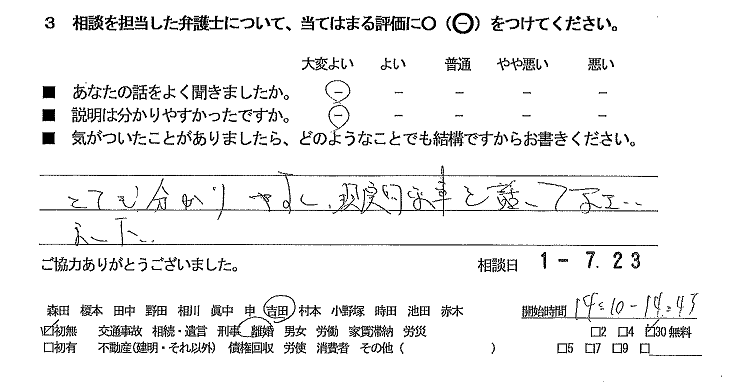 3 相談を担当した弁護士について、当てはまる評価に○（⊖）をつけてください。
大変よい よい 普通 やや悪い 悪い
■ あなたの話をよく聞きましたか。 － － － － －
■ 説明は分かりやすかったですか。 － － － － －
■ 気がついたことがありましたら、どのようなことでも結構ですからお書きください。
とても分かりやすく、現実的な事を話して
下
ご協力ありがとうございました。
相談日 1-7.23
森田 榎本 田中 野田 相川 眞中 申 吉田 村本 小野塚 時田 池田 赤木
開始時間 14:10-14:43
☑初無 交通事故 相続・遺言 刑事 離婚 男女 労働 家賃滞納 労災 □2 □4 ☑30無料
□初有 不動産(建明・それ以外) 債権回収 労使 消費者 その他（ ） □5 □7 □9 □